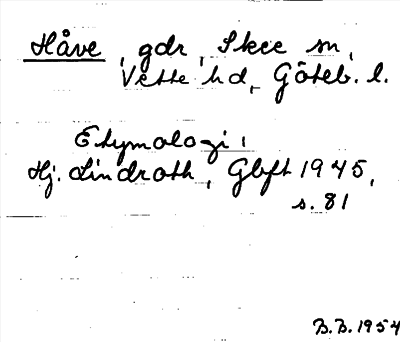 Håve, gdr, Skee sn,
Vette hd, Göteb. l.
Etymologi:
Hj. Lindroth, Gbft 1945,
s. 81
B.B. 1954